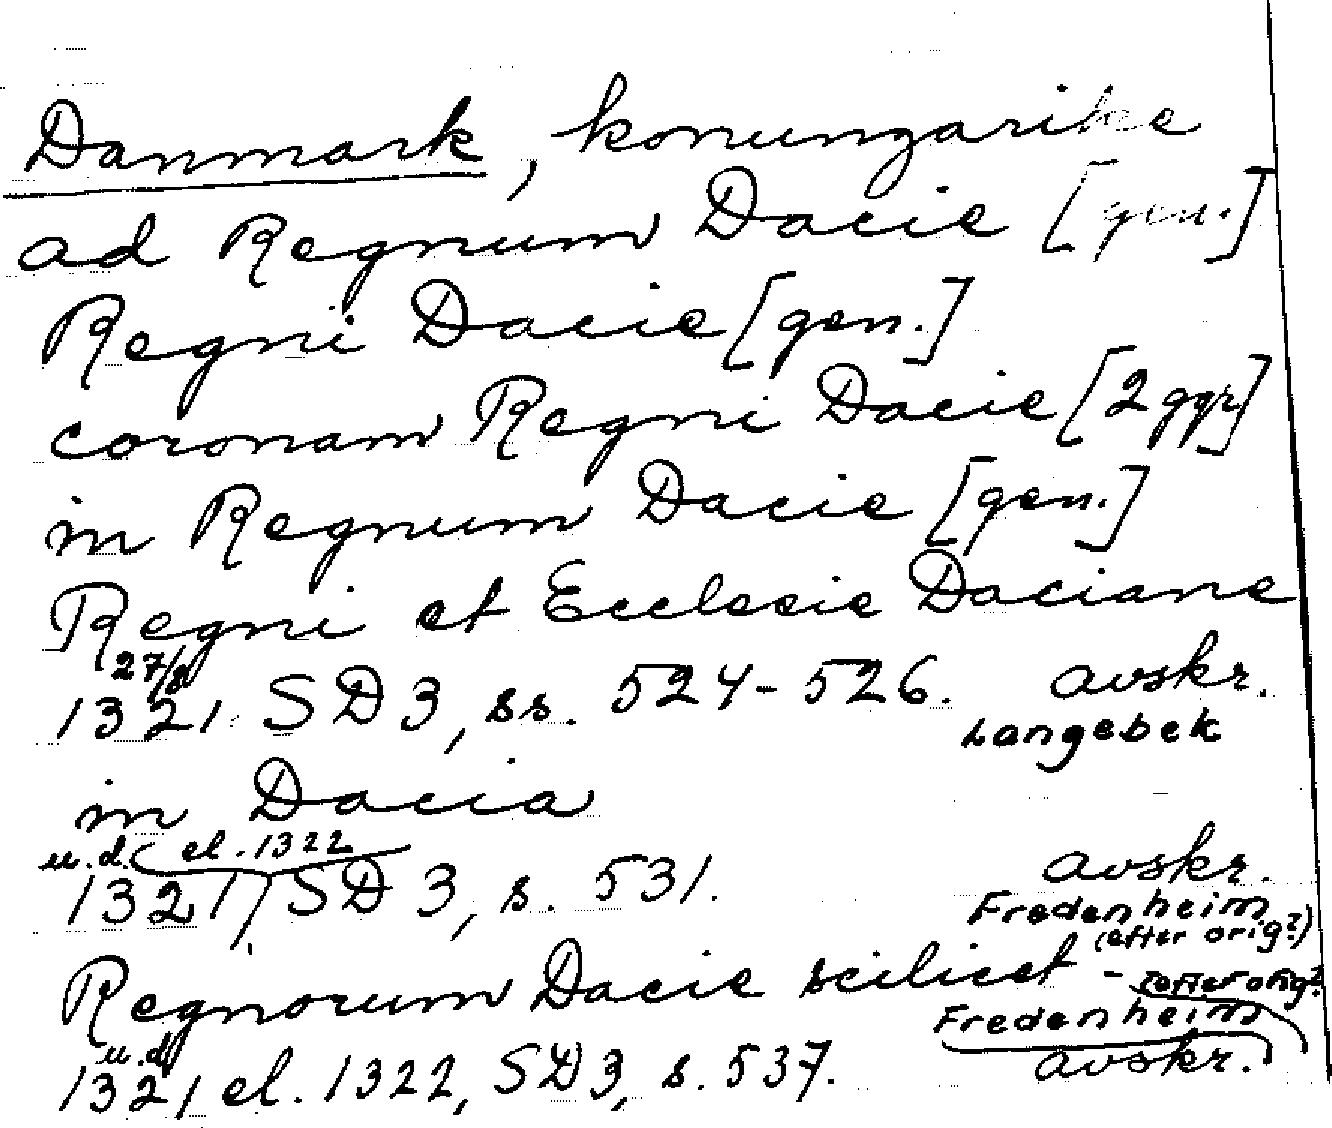 Danmark, konungarike
ad Regnum Dacie [gen.]
Regni Dacie [gen.]
coronam Regni Dacie [2 ggr]
in Regnum Dacie [gen.]
Regni et Ecclesie Daciane
27/8
1321 SD 3, ss. 524-526. avskr.
Langebek
in Dacia
u.d. (el. 1322
1321) SD 3, s. 531. avskr.
Fredenheim
(efter orig?)
Regnorum Dacie scilicet - (efter orig?
Fredenheim)
u.d. avskr.
1321 el. 1322, SD 3, s. 537.